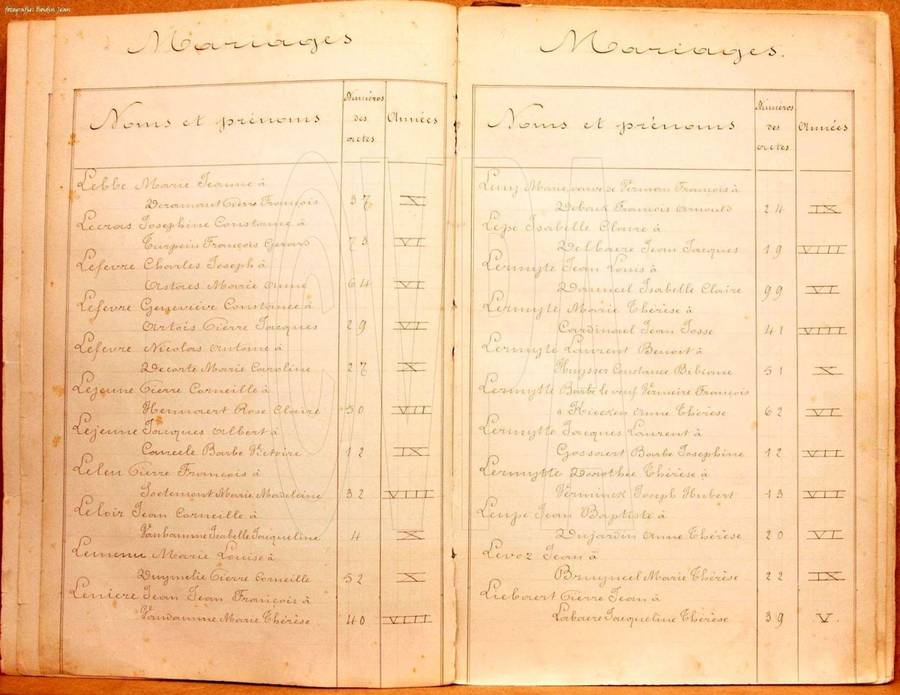 fotografie: Beidin Jean
Mariages
Noms et prénoms
Numéros des actes
Années
Lebbe Marie Jeanne à
Deramaut Pierre François 37 IX
Lecras Josephine Constance à
Turpein François Gerard 73 VI
Lefevre Charles Joseph à
Astaes Marie Anne 64 VI
Lefevre Geneviève Constance à
Artois Pierre Jacques 29 VI
Lefevre Nicolas Antoine à
Decorte Marie Caroline 27 X
Lejeune Pierre Corneille à
Hennaert Rose Claire 50 VII
Lejeune Jacques Albert à
Barbe Victoire 12 IX
Leleu Pierre François à
Soetemont Marie Madeleine 32 VIII
Leloir Jean Corneille à
Vanbamme Isabelle Jacqueline 4 X
Lemenu Marie Louise à
Pierre Corneille 52 X
Leniere Jean Jean François à
Vandamme Marie Thérèse 40 VIII
Mariages.
Noms et prénoms
Numéros des actes
Années
Marie veuve de François à
François Arnould 24 IX
Lepe Isabelle Claire à
Delbaere Jean Jacques 19 VIII
Lermyte Jean Louis à
Isabelle Claire 99 VI
Lermyte Marie Thérèse à
Cardinael Jean Josse 41 VIII
Lermyte Laurent Benoit à
Huyssen Constance Bibiane 51 X
Lermytte Barbe le veuf Vermeire François
à Kieeken Anne Thérèse 62 VI
Lermytte Jacques Laurent à
Gossaert Barbe Josephine 12 VII
Lermytte Dorothée Thérèse à
Verminck Joseph Hubert 13 VII
Leupe Jean Baptiste à
Dujardin Anne Thérèse 20 VI
Levoz Jean à
Bruyneel Marie Thérèse 22 IX
Liebaert Pierre Jean à
Labaere Jacqueline Thérèse 39 V.